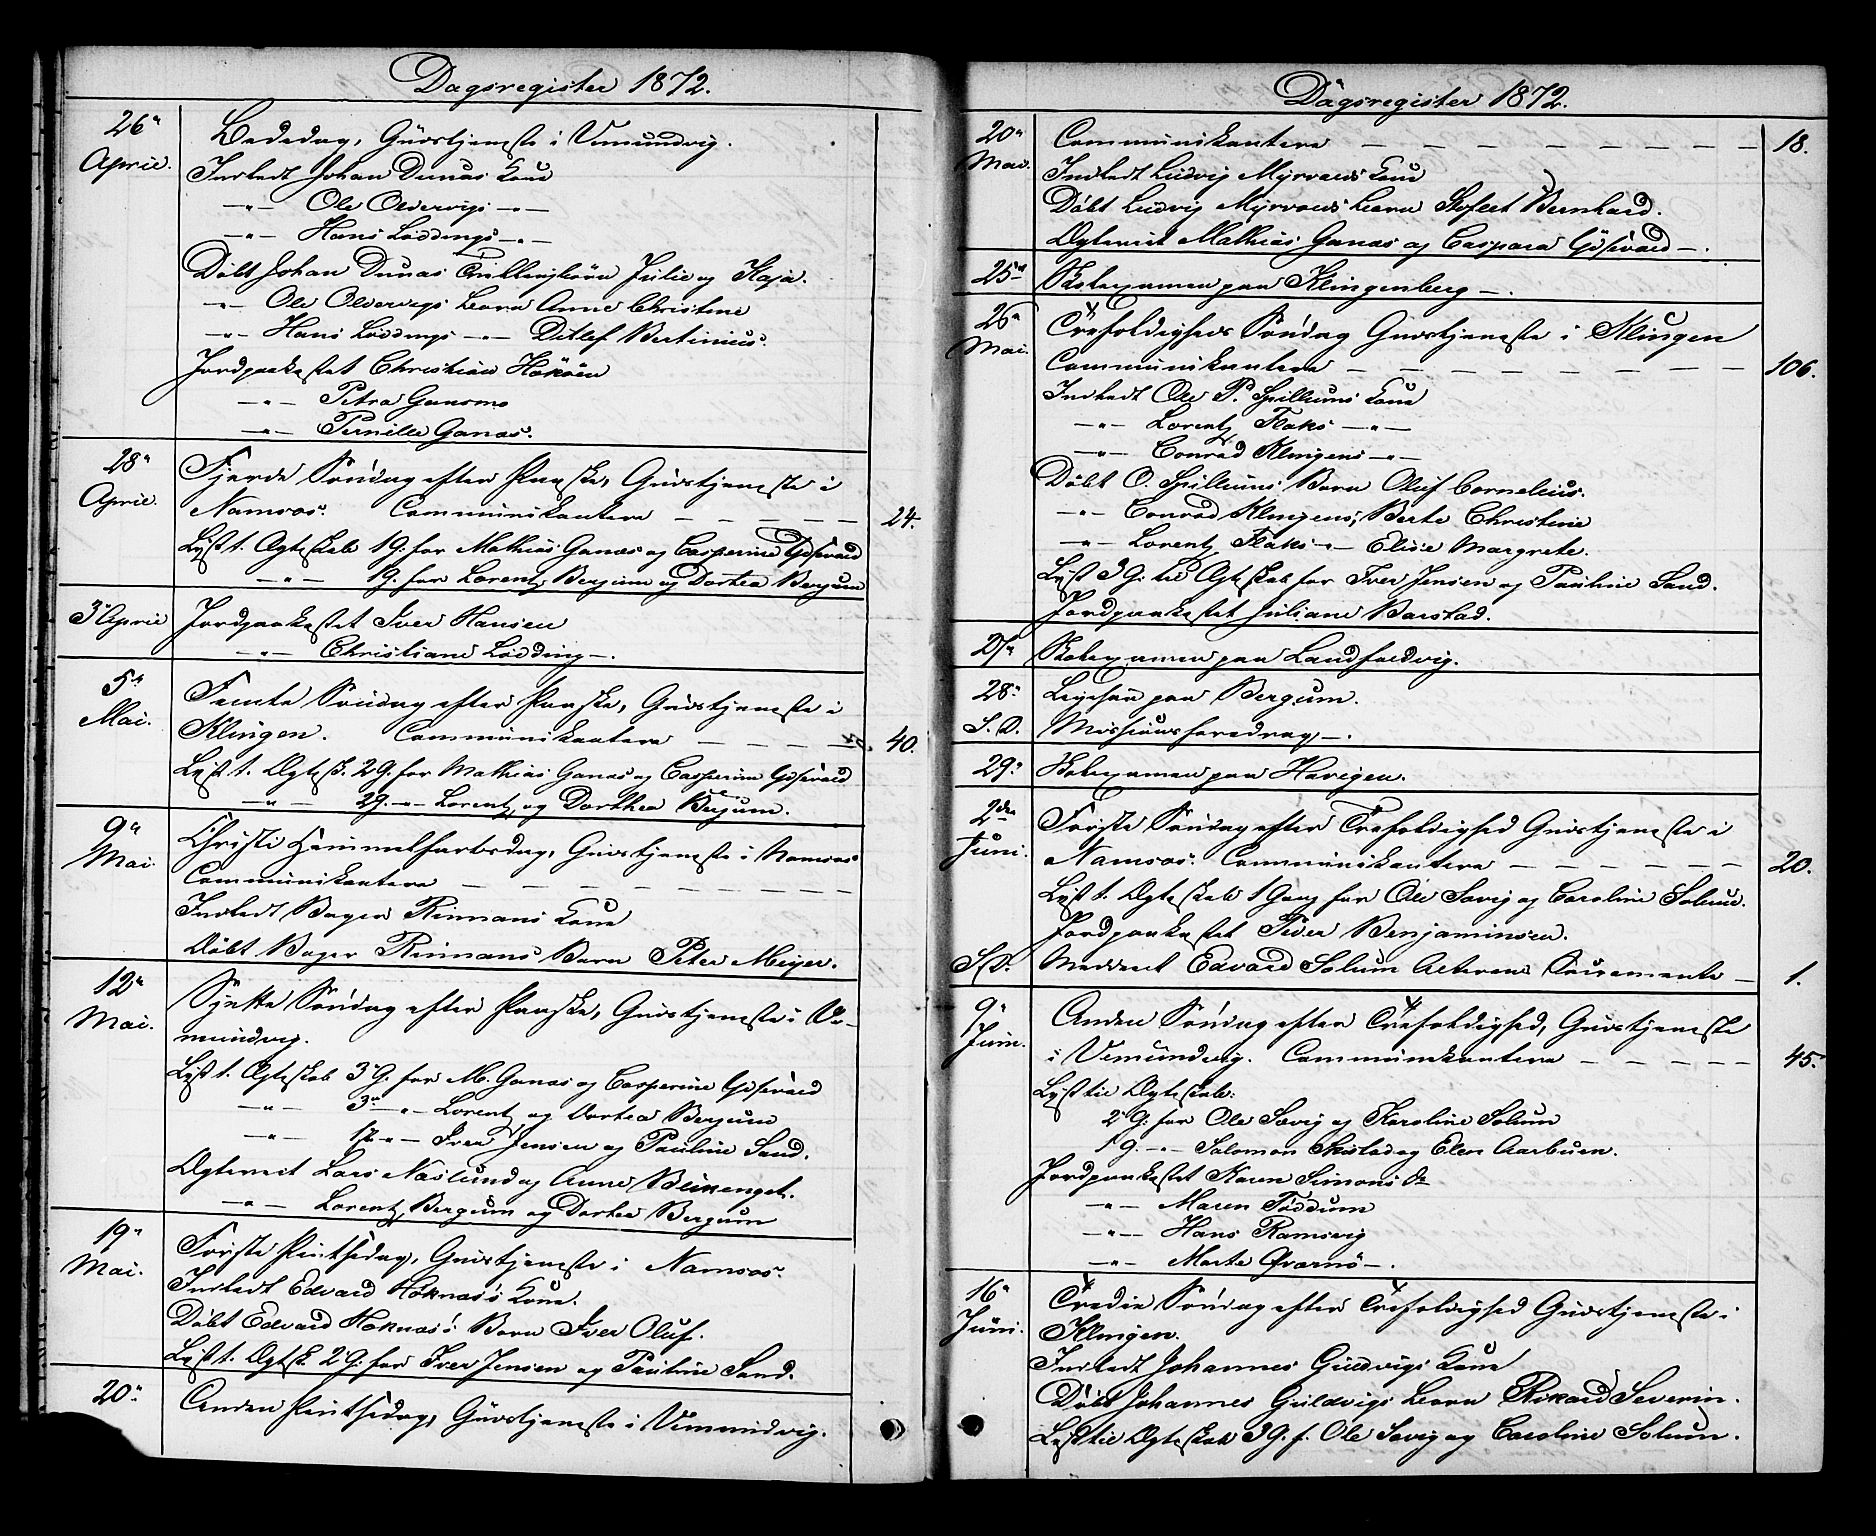 Dagsregister 1872.
26"
April.
Bededag, Gudstjeneste i Vemundvig.
Indledt Johan Dunas Kone
—"— Ole Oldervigs —"—
—"— Hans Löddings —"—
Döbt Johan Dunas Tvillingbörn Julie og Kaja.
—"— Ole Oldervigs Barn Anne Christine
—"— Hans Löddings —"— Ditlef Bertinius.
Jordpaakastet Christian Höknes
—"— Petra Gansmo
—"— Pernille Ganas.
28"
April.
Fjerde Söndag efter Paaske, Gudstjeneste i
Namsos. Communikantere — — — — — 24.
Lyst t. Ægteskab 1 G. for Mathias Ganas og Casperine
—"— 1 G. for Lorentz Bergum og Dortea Bergum
3" April
Jordpaakastet Iver Hansen
—"— Christiane Lödding —.
5"
Mai.
Femte Söndag efter Paaske, Gudstjeneste i
Klingen. Communikantere — — — — 40.
Lyst t. Ægtesk. 2 G. for Mathias Ganas og Casperine
—"— 2 G. —"— Lorentz og Dorthea Bergum.
9"
Mai.
Christi Himmelfartsdag, Gudstjeneste i Namsos
Communikantere — — — — — — — —
Indledt Bager Rinnans Kone
Döbt Bager Rinnans Barn Peter Meyer.
12"
Mai.
Sjette Söndag efter Paaske, Gudstjeneste i Ve-
mundvig.
Lyst t. Ægteskab 3 G. for M. Ganas og Casperine
—"— 3" —"— Lorentz og Dortea Bergum
—"— 1ste —"— Iver Jensen og Pauline Sand.
Ægteviet Lars Näslund og Anne
—"— Lorentz Bergum og Dortea Bergum
19"
Mai.
Förste Pintsedag, Gudstjeneste i Namsos.
Indledt Edvard Höknas's Kone.
Döbt Edvard Höknas's Barn Iver Oluf.
Lyst t. Ægtsk. 2 G. for Iver Jensen og Pauline Sand.
20"
Anden Pintsedag, Gudstjeneste i Vemundvig.
Dagsregister 1872.
20"
Mai.
Communikantere — — — — — — — — 18.
Indledt Ludvig Myrvolds Kone
Döbt Ludvig Myrvolds Barn Bernhard.
Ægteviet Mathias Ganas og Caspara —.
25"
Skolexamen paa Klingenberg —.
26"
Mai.
Trefoldigheds Söndag Gudstjeneste i Klingen
Communikantere — — — — — — — — 106.
Indledt Ole P. Spillums Kone
—"— Lorentz Flaks —"—
—"— Conrad Klingens —"—
Döbt O. Spillums Barn Oluf Cornelius.
—"— Conrad Klingens, Berte Christine
—"— Lorentz Flaks —"— Elise Margrete.
Lyst 3 G. til Ægteskab for Iver Jensen og Pauline Sand.
Jordpaakastet Juliane Barstad.
27"
Skolexamen paa Landfaldvig.
28"
Ligesyn paa Bergum.
S. D.
Missionsforedrag —.
29"
Skolexamen paa Havigen.
2den
Juni.
Förste Söndag efter Trefoldighed Gudstjeneste i
Namsos. Communikantere — — — — — — 20.
Lyst t. Ægteskab 1 Gang for Ole Savig og Caroline Solum.
Jordpaakastet Peder Benjaminsen.
S. D.
Meddeelt Edvard Solum Alterens Sacramente — 1.
9"
Juni.
Anden Söndag efter Trefoldighed, Gudstjeneste
i Vemundvig. Communikantere — — — — — 45.
Lyst til Ægteskab:
2 G. for Ole Savig og Karoline Solum
1 G. —"— Salomon og Elen Aarbuen.
Jordpaakastet Karen Simons Dr
—"— Maren Föddum
—"— Hans Ramsvig
—"— Marte Qvarnö —.
16"
Juni.
Tredie Söndag efter Trefoldighed Gudstjeneste i
Klingen.
Indledt Johannes Guldvigs Kone
Döbt Johannes Guldvigs Barn Rikard Severin.
Lyst til Ægteskab 3 G. f. Ole Savig og Caroline Solum.